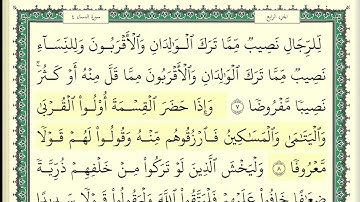 الجزء الرابع سورة النساء ٤
لِّلرِّجَالِ نَصِيبٌ مِّمَّا تَرَكَ الْوَالِدَانِ وَالْأَقْرَبُونَ وَلِلنِّسَاءِ
نَصِيبٌ مِّمَّا تَرَكَ الْوَالِدَانِ وَالْأَقْرَبُونَ مِمَّا قَلَّ مِنْهُ أَوْ كَثُرَ
نَصِيبًا مَّفْرُوضًا ٧ وَإِذَا حَضَرَ الْقِسْمَةَ أُولُوا الْقُرْبَى
وَالْيَتَامَى وَالْمَسَاكِينُ فَارْزُقُوهُم مِّنْهُ وَقُولُوا لَهُمْ قَوْلًا
مَّعْرُوفًا ٨ وَلْيَخْشَ الَّذِينَ لَوْ تَرَكُوا مِنْ خَلْفِهِمْ ذُرِّيَّةً
ضِعَافًا خَافُوا عَلَيْهِمْ فَلْيَتَّقُوا اللَّهَ وَلْيَقُولُوا قَوْلًا سَدِيدًا